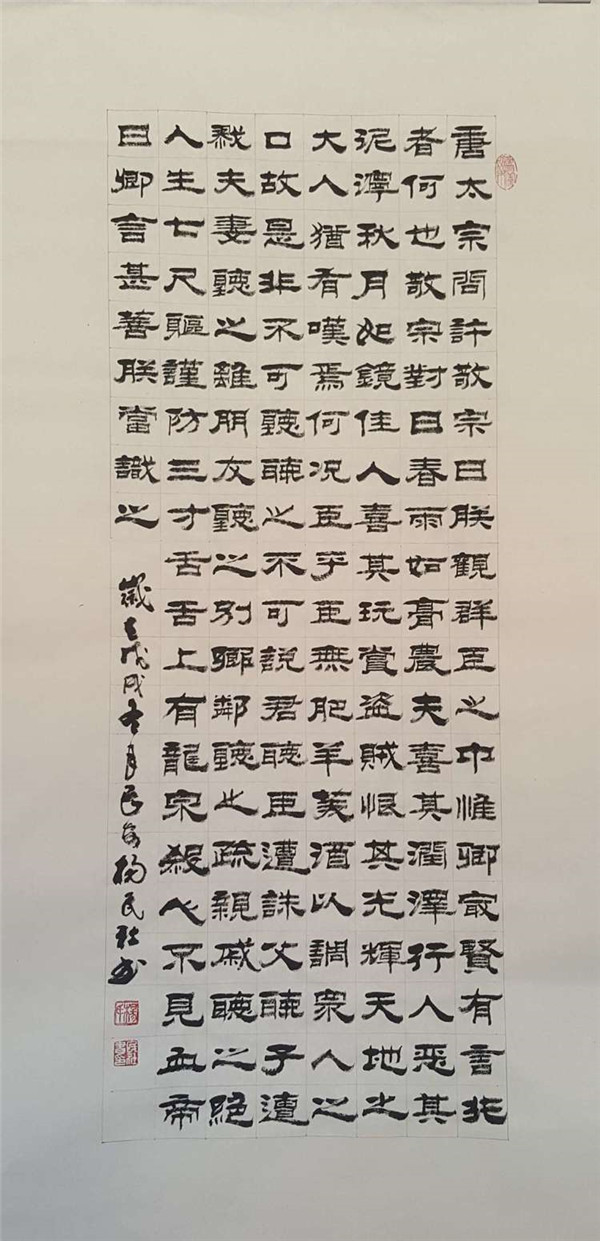 唐太宗問許敬宗曰朕觀群臣之中惟卿最賢有言非
者何也敬宗對曰春雨如膏農夫喜其潤澤行人惡其
泥濘秋月如鏡佳人喜其玩賞盜賊恨其光輝天地之
大人猶有嘆焉何况臣乎臣無肥羊美酒以調衆人之
口故是非不可聽聽之不可説君聽臣遭誅父聽子遭
戮夫妻聽之雖朋友聽之别鄉鄰聽之疏親戚聽之絕
人生七尺軀謹防三寸舌舌上有龍泉殺人不見血帝
曰卿言甚善朕當識之
歲在戊戌冬月楊民書